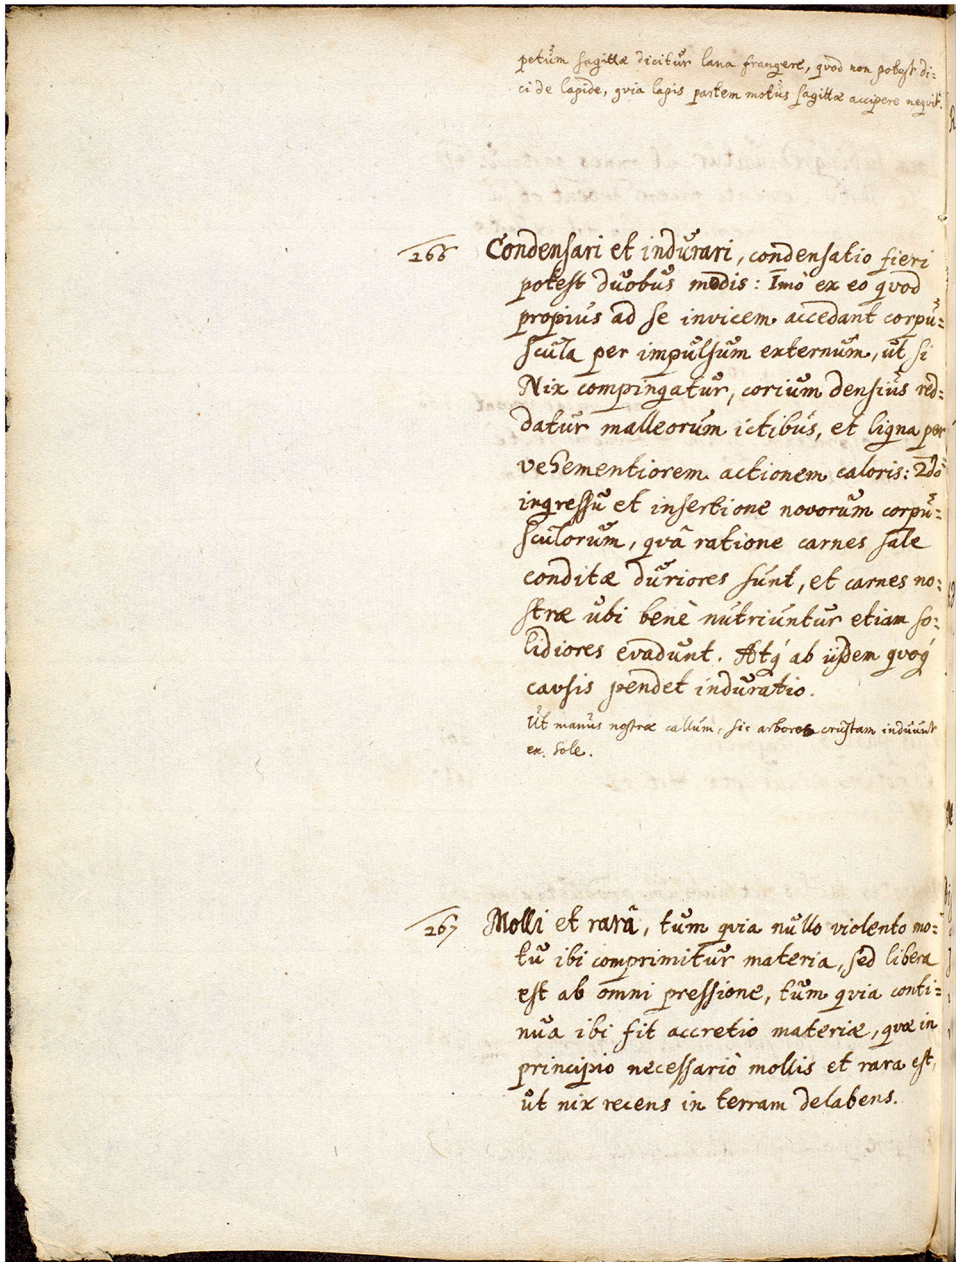 petum sagittæ dicitur lana frangere, quod non potest di:
ci de lapide, quia lapis partem motus sagittæ accipere nequit.
266 Condensari et indurari, condensatio fieri
potest duobus modis: Imò ex eo quod
propius ad se invicem accedant corpu:
scula per impulsum externum, ut si
Nix compingatur, corium densius red:
datur malleorum ictibus, et ligna per
vehementiorem actionem caloris: 2dò
ingressu et insertione novorum corpu:
sculorum, quâ ratione carnes sale
conditæ duriores sunt, et carnes no:
stræ ubi benè nutriuntur etiam so:
lidiores evadunt. Atq́ ab ijsdem quoq́
causis pendet induratio.
Ut manus nostræ callum, sic arbores crustam induunt
ex Sole.
267 Molli et rarâ, tum quia nullo violento mo:
tu ibi comprimitur materia, sed libera
est ab omni pressione, tum quia conti:
nua ibi fit accretio materiæ, quæ in
principio necessariò mollis et rara est,
ut nix recens in terram delabens.